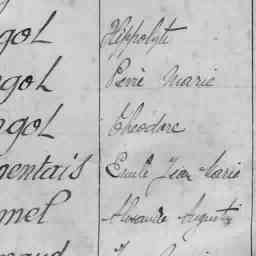 gol Hippolyte
gol Pierre Marie
gol Théodore
mentais Emile Jean Marie
mel Alexandre Auguste